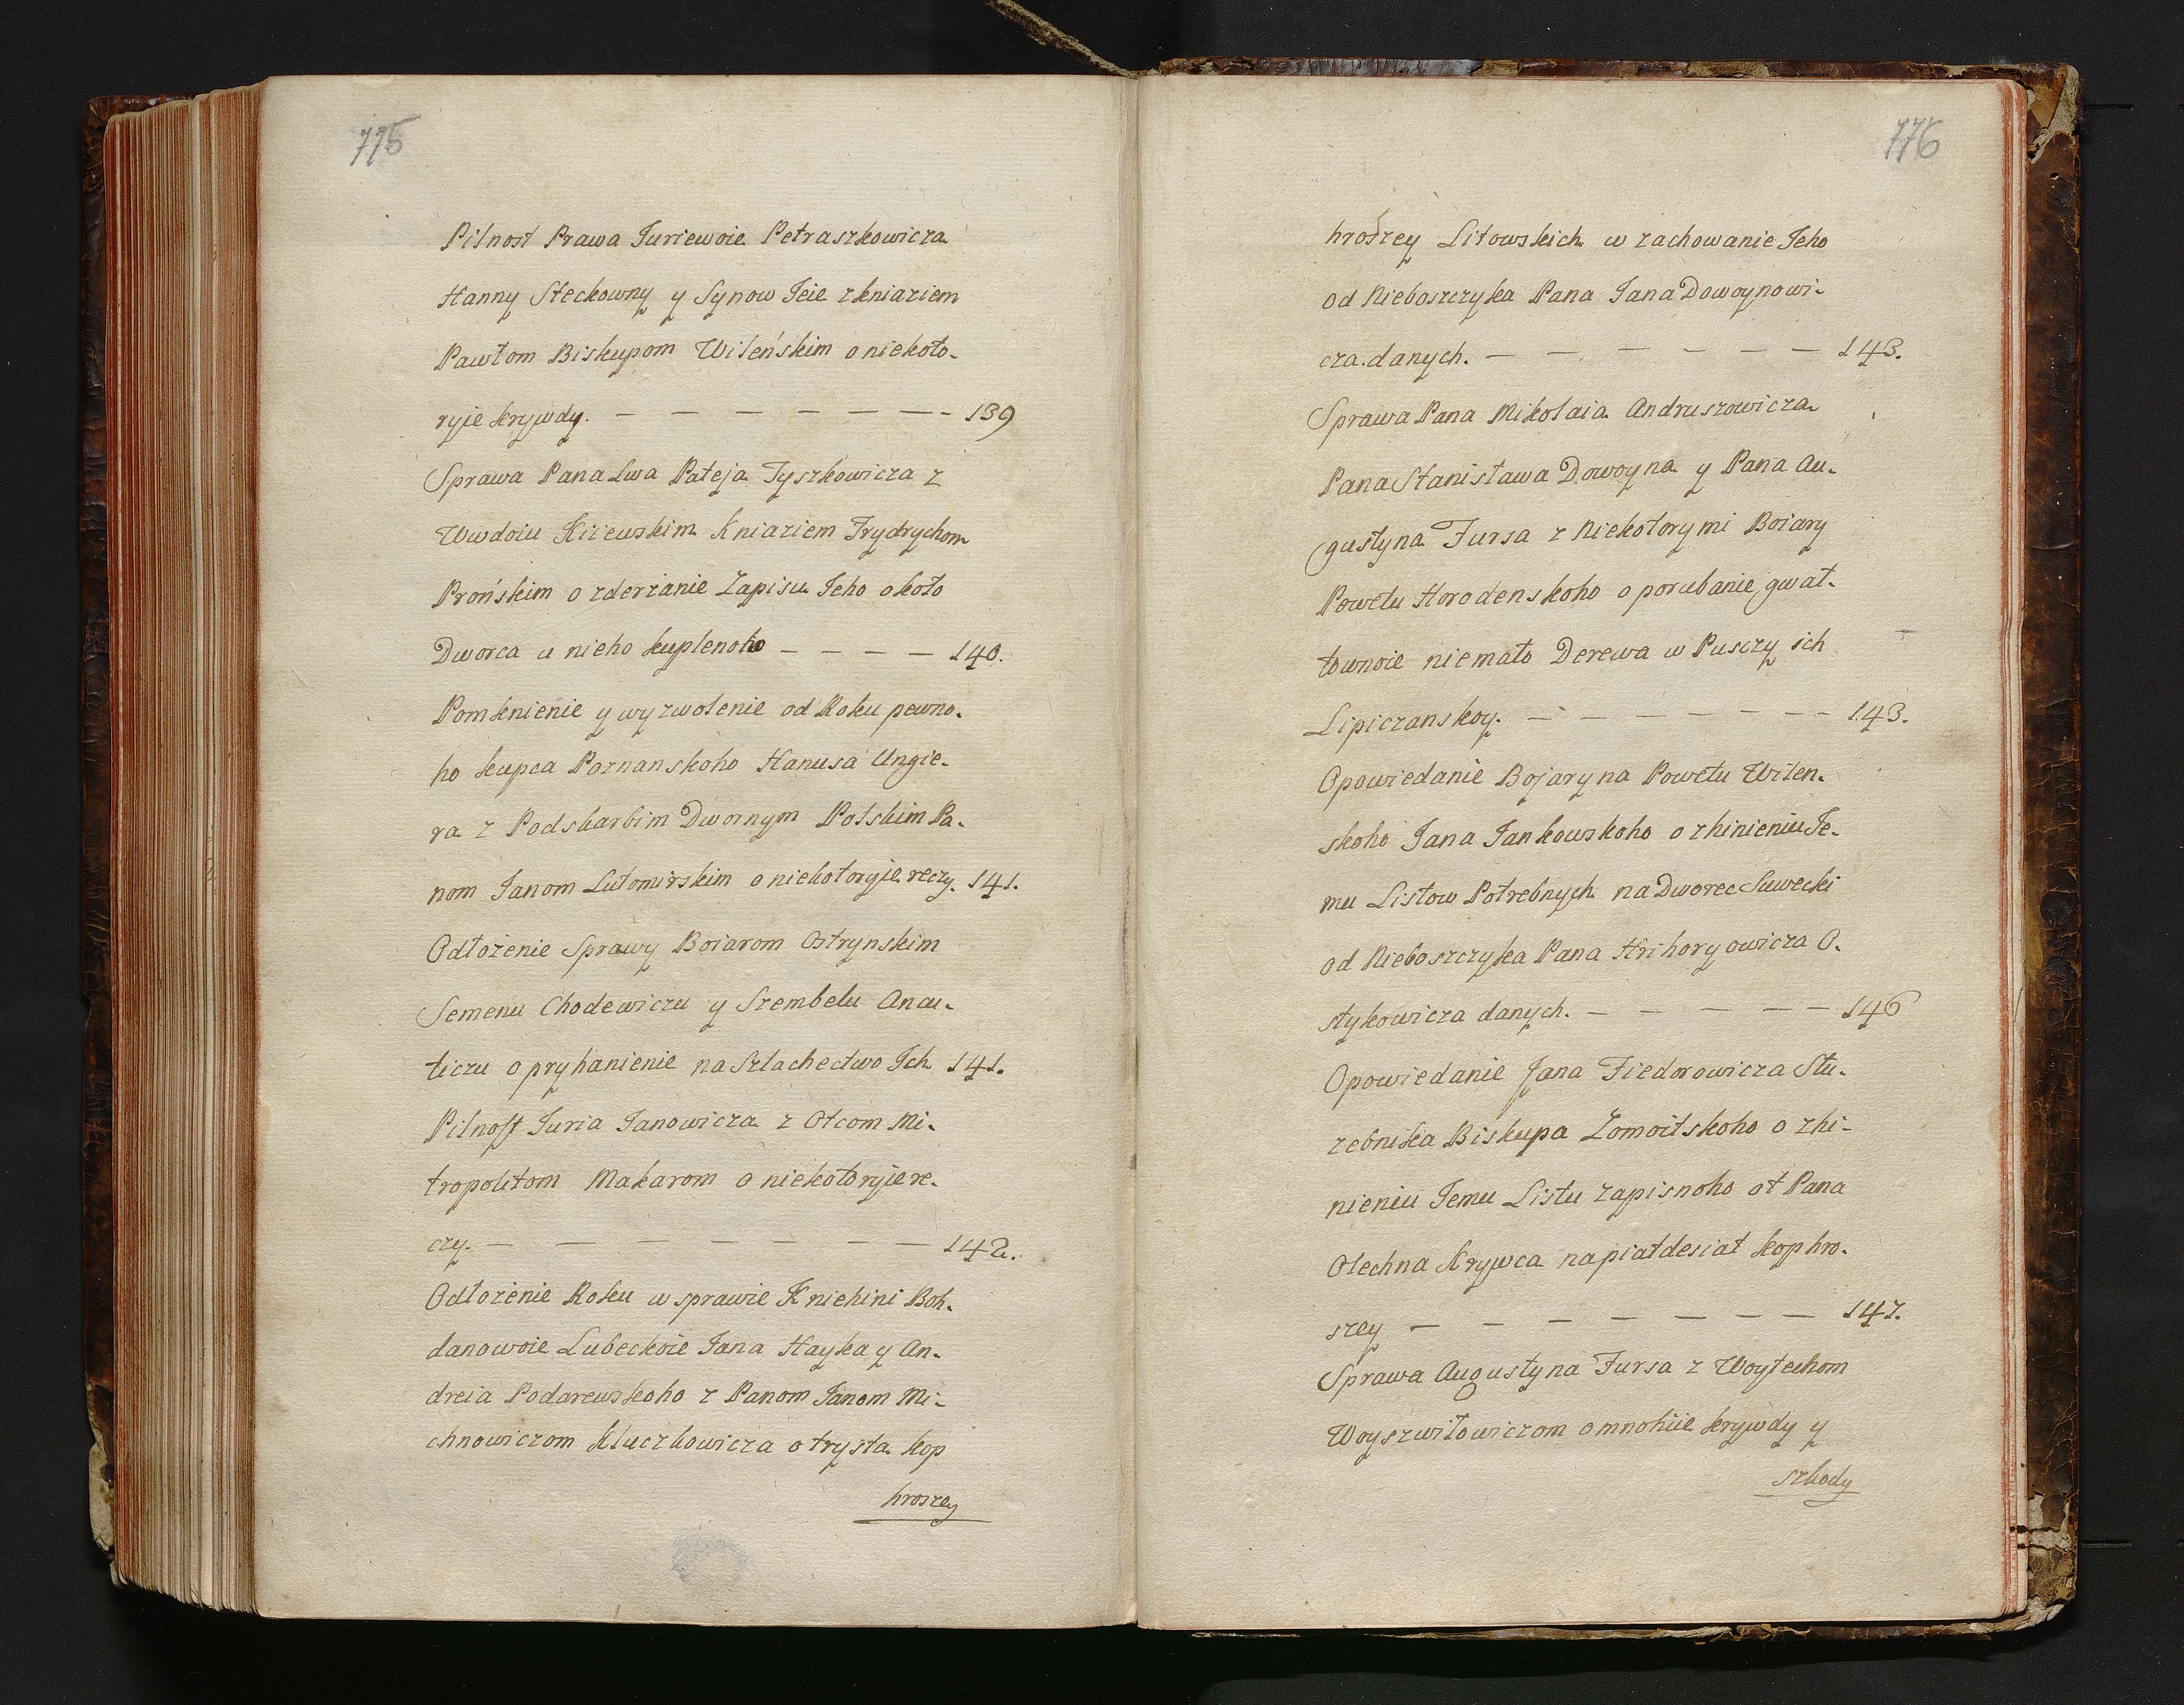 775
Pilnost Prawa Juriewoie Petraszkowicza
Hanny Steckowny y Synow Jeie z kniaziem
Pawłom Biskupom Wileńskim o niekoto-
ryie krywdy. — — — — — — — 139
Sprawa Pana Lwa Pateja Tyszkowicza z
Wwdoiu Kiiewskim Kniaziem Frydrychom
Prońskim o zderżanie Zapisu Jeho około
Dworca u nieho kuplenoho — — — — 140.
Pomknienie y wyzwolenie od Roku pewno-
ho kupca Poznanskoho Hanusa Ungie-
ra z Podskarbim Dwornym Polskim Pa-
nom Janom Lutomirskim o niekotoryie reczy. 141.
Odłożenie Sprawy Boiarom Ostrynskim
Semenu Chodewiczu y Szembelu Ancu-
ticzu o pryhanienie na Szlachectwo Ich 141.
Pilnost Juria Janowicza z Otcom Mi-
tropolitom Makarom o niekotoryie re-
czy. — — — — — — — 142.
Odłożenie Roku w sprawie Kniehini Boh-
danowoie Lubeckoie Jana Hayka y An-
dreia Podarewskoho z Panom Janom Mi-
chnowiczom Kluczkowicza o trysta kop
hroszey
776
hroszey Litowskich w zachowanie Jeho
od Nieboszczyka Pana Jana Dowoynowi-
cza danych. — — — — — — 143.
Sprawa Pana Mikolaia Andruszowicza
Pana Stanisława Dowoyna y Pana Au-
gustyna Fursa z Niekotorymi Boiary
Powetu Horodenskoho o porubanie gwał-
townoie niemało Derewa w Pusczy ich
Lipiczanskoy. — — — — — — — 143.
Opowiedanie Bojaryna Powetu Wilen-
skoho Jana Jankowskoho o zhinieniu Je-
mu Listow Potrebnych na Dworec Suwecki
od Nieboszczyka Pana Hrihoryowicza O-
stykowicza danych. — — — — — 146
Opowiedanie Jana Fiedorowicza Słu-
żebnika Biskupa Żomoitskoho o zhi-
nieniu Jemu Listu zapisnoho ot Pana
Olechna Krywca na piatdesiat kop hro-
szey — — — — — — — 147.
Sprawa Augustyna Fursa z Woytechom
Woyszwiłowiczom o mnohiie krywdy y
szkody